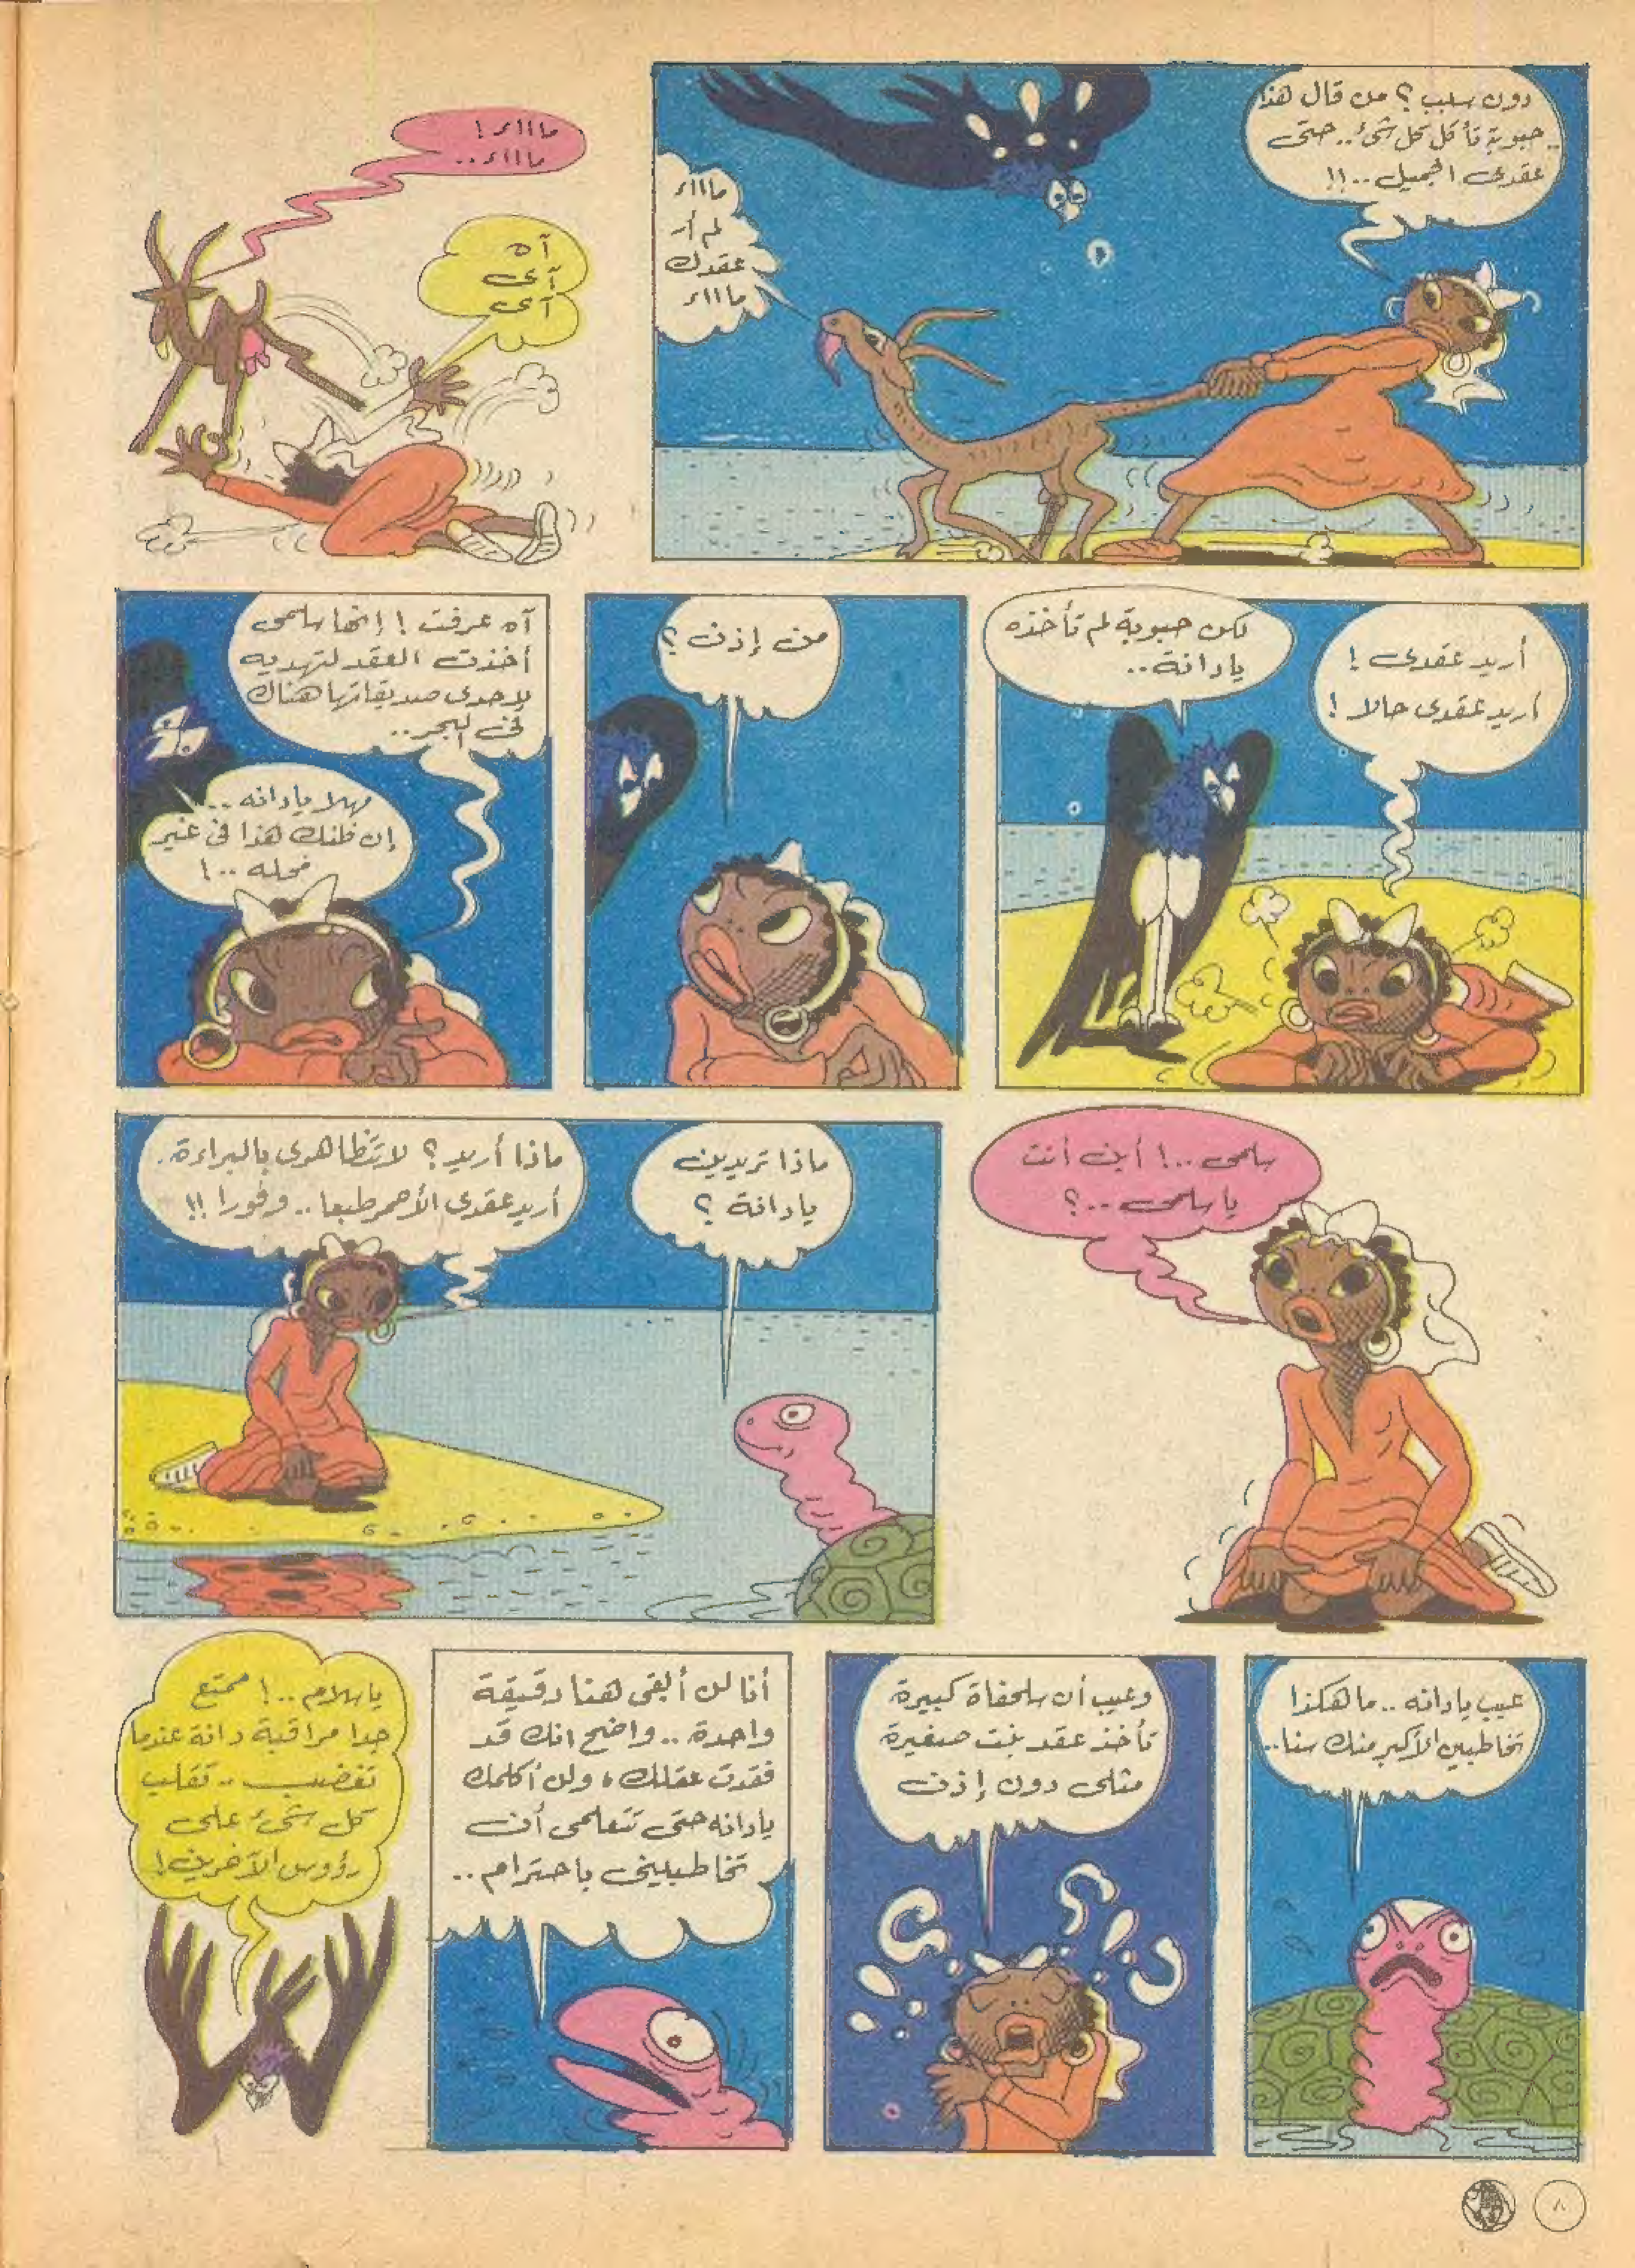 دون سبب ؟ من قال هذا
.. حبوبة تأكل كل شئ .. حتى
عقدى الجميل .. !!
ماااء
لم أر
عقدك
ماااء
ماااء !
ماااء ..
آه
آى
آى
أريد عقدى !
أريد عقدى حالا !
لكن حبوبة لم تأخذه
يادانة ..
من إذن ؟
آه عرفت ! إنها سلمى
أخذت العقد لتهديه
لإحدى صديقاتها هناك
فى البحر ..
مهلا يادانه ..
إن ظنك هذا فى غير
محله .. !
سلمى .. ! أين أنت
يا سلمى .. ؟
ماذا تريدين
يادانة ؟
ماذا أريد ؟ لا تتظاهرى بالبراءة .
أريد عقدى الأحمر طبعا .. وفورا !!
عيب يادانه .. ما هكذا
تخاطبين الأكبر منك سنا ..
وعيب أن سلحفاة كبيرة
تأخذ عقد بنت صغيرة
مثلى دون إذن
أنا لن أبقى هنا دقيقة
واحدة .. واضح انك قد
فقدت عقلك ، ولن أكلمك
يادانه حتى تتعلمى أن
تخاطبينى باحترام ..
ياسلام .. ! ممتع
جدا مراقبة دانة عندما
تغضب .. تقلب
كل شئ على
رؤوس الآخرين !
٨